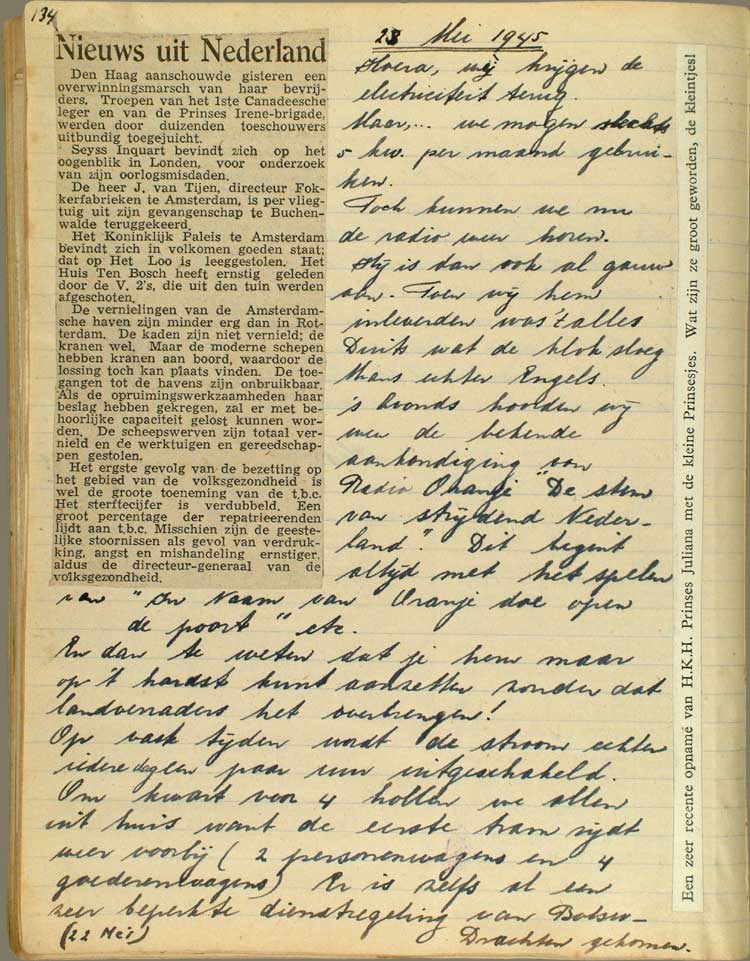 134
Nieuws uit Nederland
Den Haag aanschouwde gisteren een
overwinningsmarsch van haar bevrij-
ders. Troepen van het 1ste Canadeesche
leger en van de Prinses Irene-brigade,
werden door duizenden toeschouwers
uitbundig toegejuicht.
Seyss Inquart bevindt zich op het
oogenblik in Londen, voor onderzoek
van zijn oorlogsmisdaden.
De heer J. van Tijen, directeur Fok-
kerfabrieken te Amsterdam, is per vlieg-
tuig uit zijn gevangenschap te Buchen-
walde teruggekeerd.
Het Koninklijk Paleis te Amsterdam
bevindt zich in volkomen goeden staat;
dat op Het Loo is leeggestolen. Het
Huis Ten Bosch heeft ernstig geleden
door de V. 2's, die uit den tuin werden
afgeschoten.
De vernielingen van de Amsterdam-
sche haven zijn minder erg dan in Rot-
terdam. De kaden zijn niet vernield; de
kranen wel. Maar de moderne schepen
hebben kranen aan boord, waardoor de
lossing toch kan plaats vinden. De toe-
gangen tot de havens zijn onbruikbaar.
Als de opruimingswerkzaamheden haar
beslag hebben gekregen, zal er met be-
hoorlijke capaciteit gelost kunnen wor-
den. De scheepswerven zijn totaal ver-
nield en de werktuigen en gereedschap-
pen gestolen.
Het ergste gevolg van de bezetting op
het gebied van de volksgezondheid is
wel de groote toeneming van de t.b.c.
Het sterftecijfer is verdubbeld. Een
groot percentage der repatrieerenden
lijdt aan t.b.c. Misschien zijn de geeste-
lijke stoornissen als gevol van verdruk-
king, angst en mishandeling ernstiger,
aldus de directeur-generaal van de
volksgezondheid.
23 Mei 1945
Hoera, wij krijgen de
electriciteit terug.
Maar,... we mogen slechts
5 kw. per maand gebrui-
ken.
Toch kunnen we nu
de radio weer horen.
Hij is dan ook al gauw
aan. Toen wij hem
inleverden was 't alles
Duits wat de klok sloeg
Thans echter Engels.
's Avonds hoorden wij
weer de bekende
aankondiging van
Radio Oranje "De stem
van strijdend Neder-
land". Dit begint
altijd met het spelen
van "In Naam van Oranje doe open
de poort" etc.
En dan te weten dat je hem maar
op 't hardst kunt aanzetten zonder dat
landverraders het overbrengen!
Op vaste tijden wordt de stroom echter
iedere dag een paar uur uitgeschakeld.
Om kwart voor 4 hollen we allen
uit huis want de eerste tram rijdt
weer voorbij (2 personenwagens en 4
goederenwagens) Er is zelfs al een
zeer beperkte dienstregeling van Bolsw-
(22 Mei) Drachten gekomen.
Een zeer recente opname van H.K.H. Prinses Juliana met de kleine Prinsesjes. Wat zijn ze groot geworden, de kleintjes!